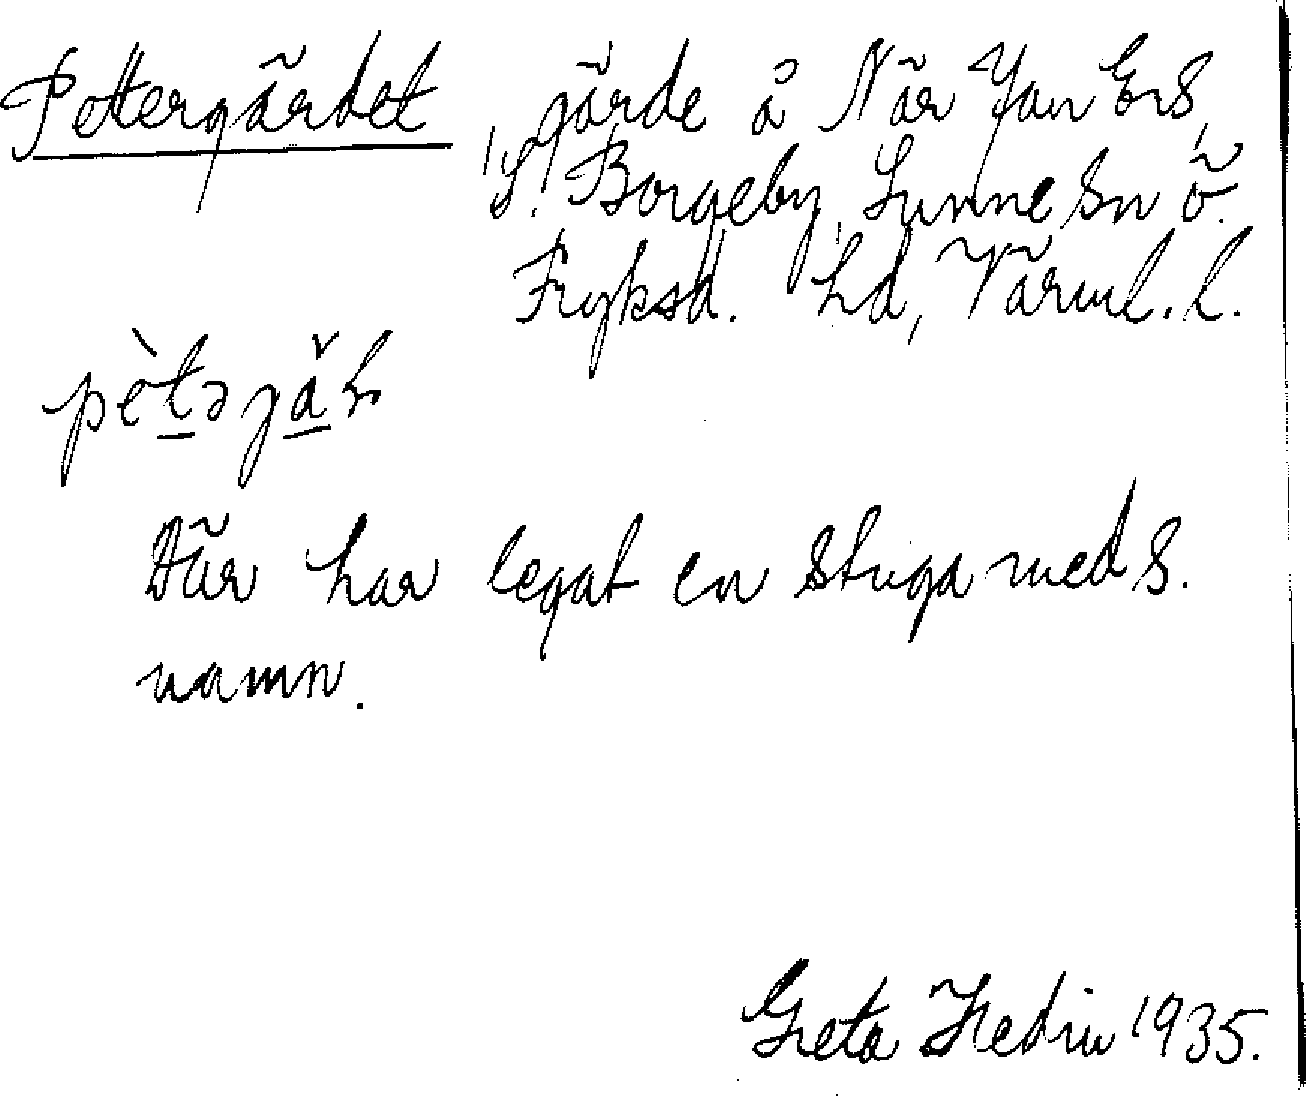 Pettergärdet gärde å När Jan Ers,
S. Borgeby, Sunne sn Ö.
Fryksd. hd, Värml. l.
pètəjä̆
Där har legat en stuga med s.
namn.
Greta Hedin 1935.